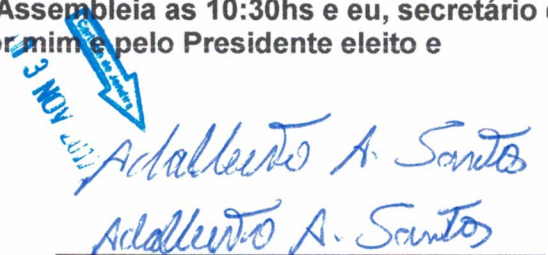 Assembleia as 10:30hs e eu, secretário
mim e pelo Presidente eleito e
Adalberto A. Santos
Adalberto A. Santos